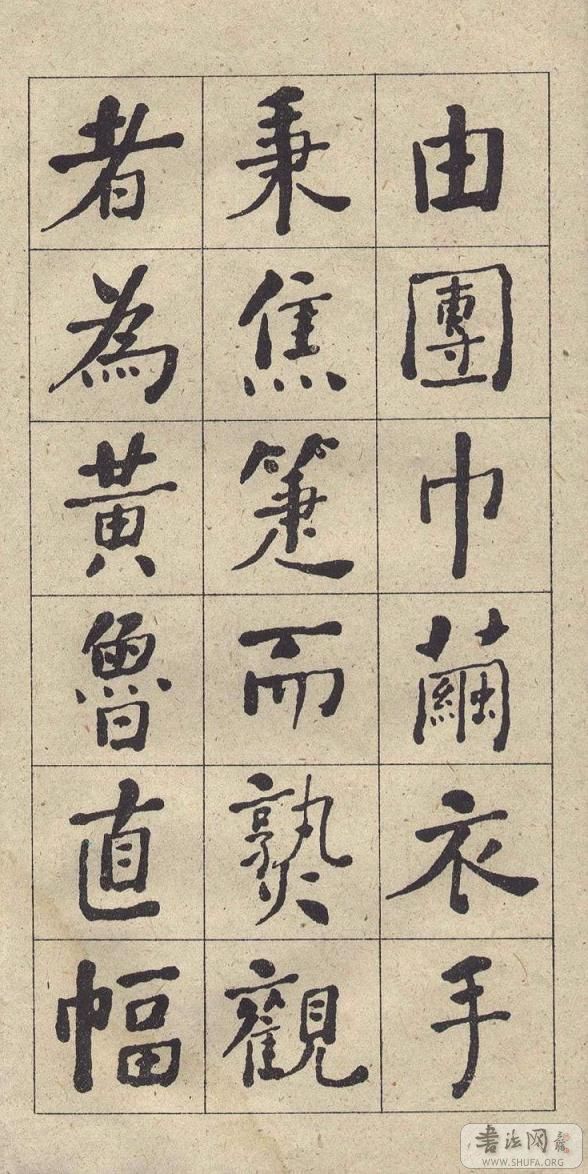 由團巾繭衣手
秉焦箑而熟觀
者為黃魯直幅
书法网
WWW.SHUFA.ORG